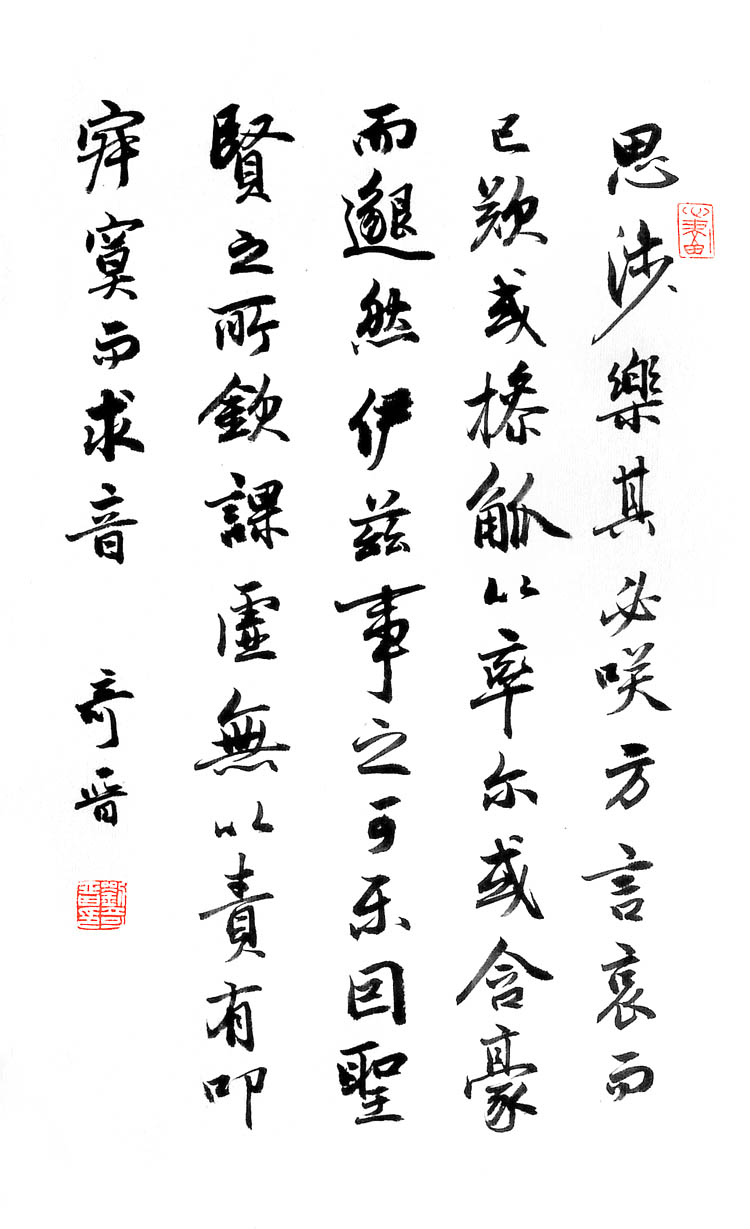 思涉樂其必咲方言哀而
已歎或操觚以率尔或含豪
而邈然伊兹事之可乐固聖
賢之所欽課虛無以責有叩
寂寞而求音 奇晋
劉奇晉印